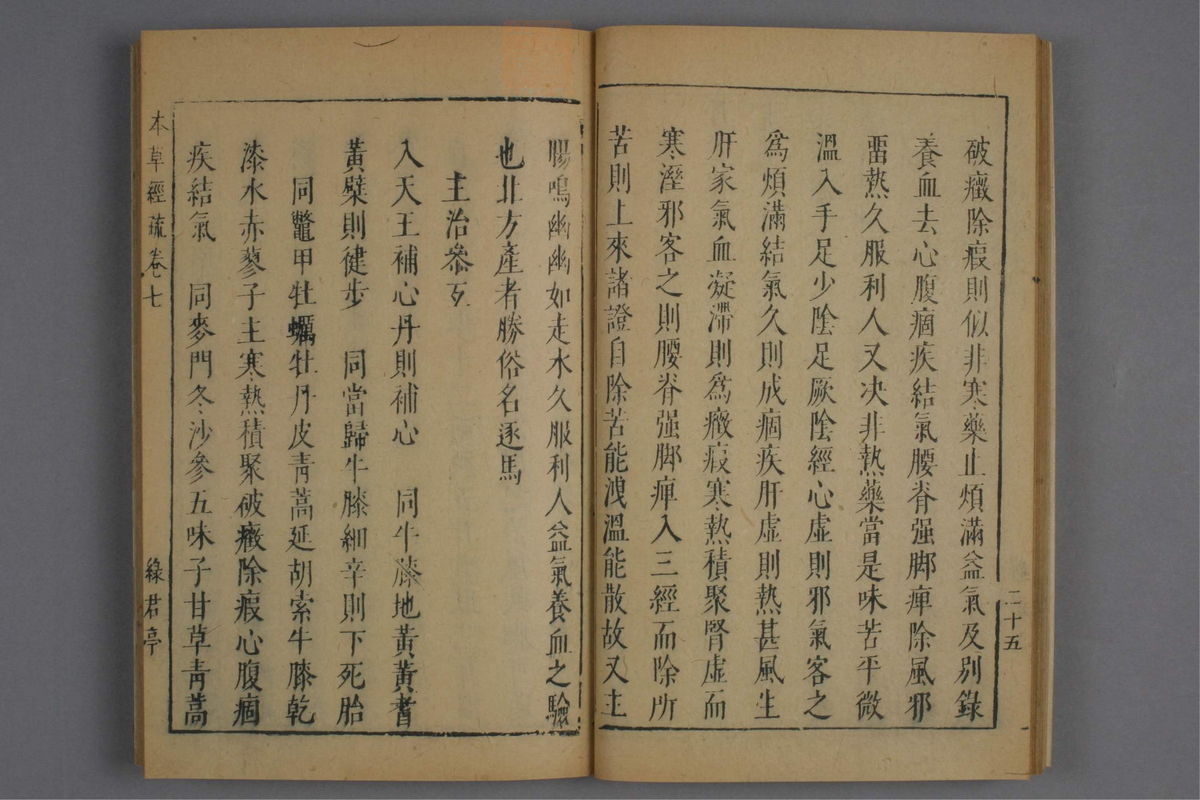 二十五
破癥除瘕則似非寒藥止煩滿益氣及別錄
養血去心腹痼疾結氣腰脊强脚痺除風邪
畱熱久服利人又决非熱藥當是味苦平微
溫入手足少陰足厥陰經心虛則邪氣客之
爲煩滿結氣久則成痼疾肝虛則熱甚風生
肝家氣血凝滯則爲癥瘕寒熱積聚腎虛而
寒溼邪客之則腰脊强脚痺入三經而除所
苦則上來諸證自除苦能洩溫能散故又主
腸鳴幽幽如走水久服利人益氣養血之驗
也北方產者勝俗名逐馬
主治叅互
入天王補心丹則補心　同牛膝地黃黃耆
黃檗則健步　同當歸牛膝細辛則下死胎
同鼈甲牡蠣牡丹皮靑蒿延胡索牛膝乾
漆水赤蓼子主寒熱積聚破癥除瘕心腹痼
疾結氣　同麥門冬沙參五味子甘草靑蒿
本草經疏卷七
綠君亭